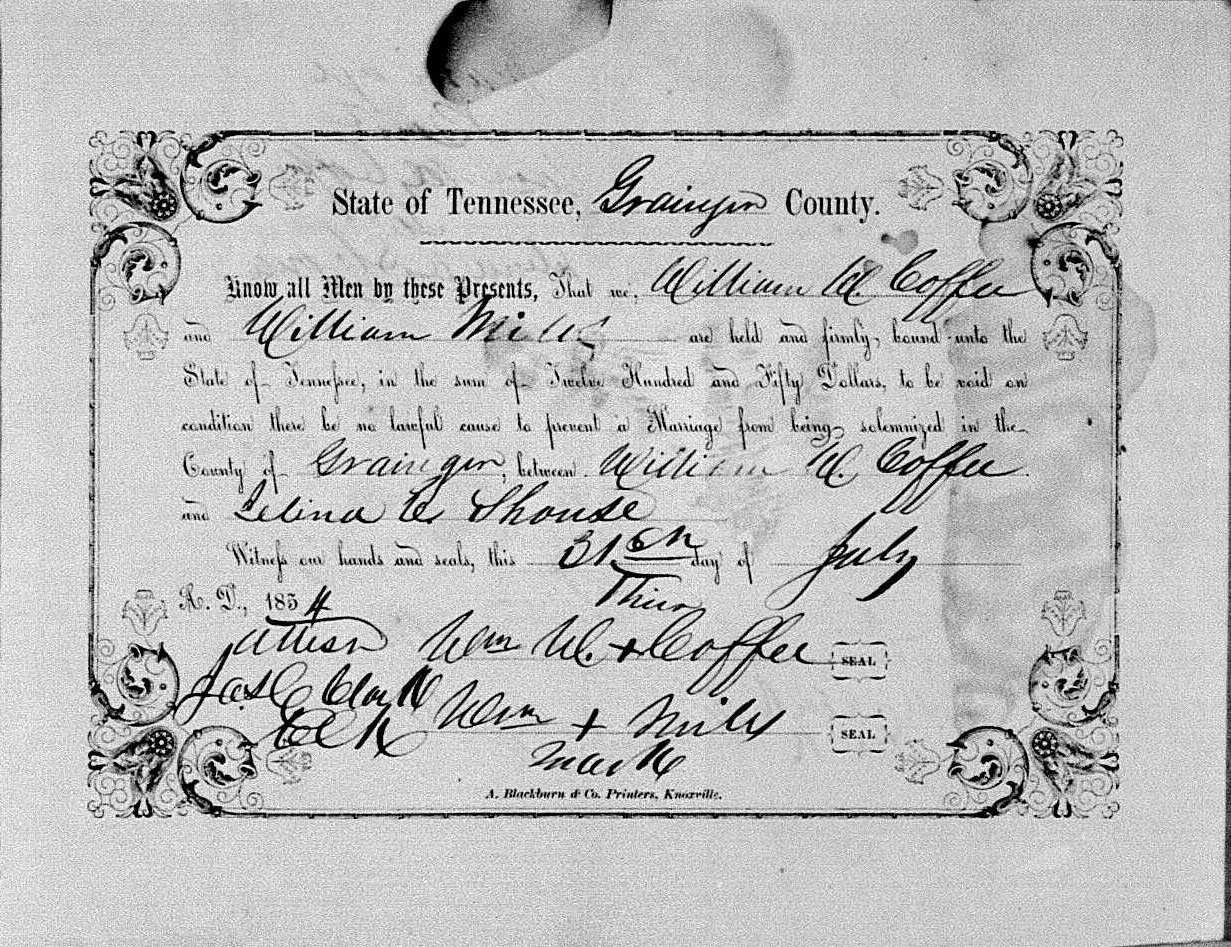 State of Tennessee, Grainger County.
Know all Men by these Presents, That we, William W. Coffee
and William Mills are held and firmly bound unto the
State of Tennessee, in the sum of Twelve Hundred and Fifty Dollars, to be void on
condition there be no lawful cause to prevent a Marriage from being solemnized in the
County of Grainger, between William W. Coffee
and C. Shouse
Witness our hands and seals, this 31 day of July
A. D., 1854 Their
Attest Wm W. + Coffee SEAL
Jas C Clark Wm + Mills SEAL
Clk
mark
A. Blackburn & Co. Printers, Knoxville.